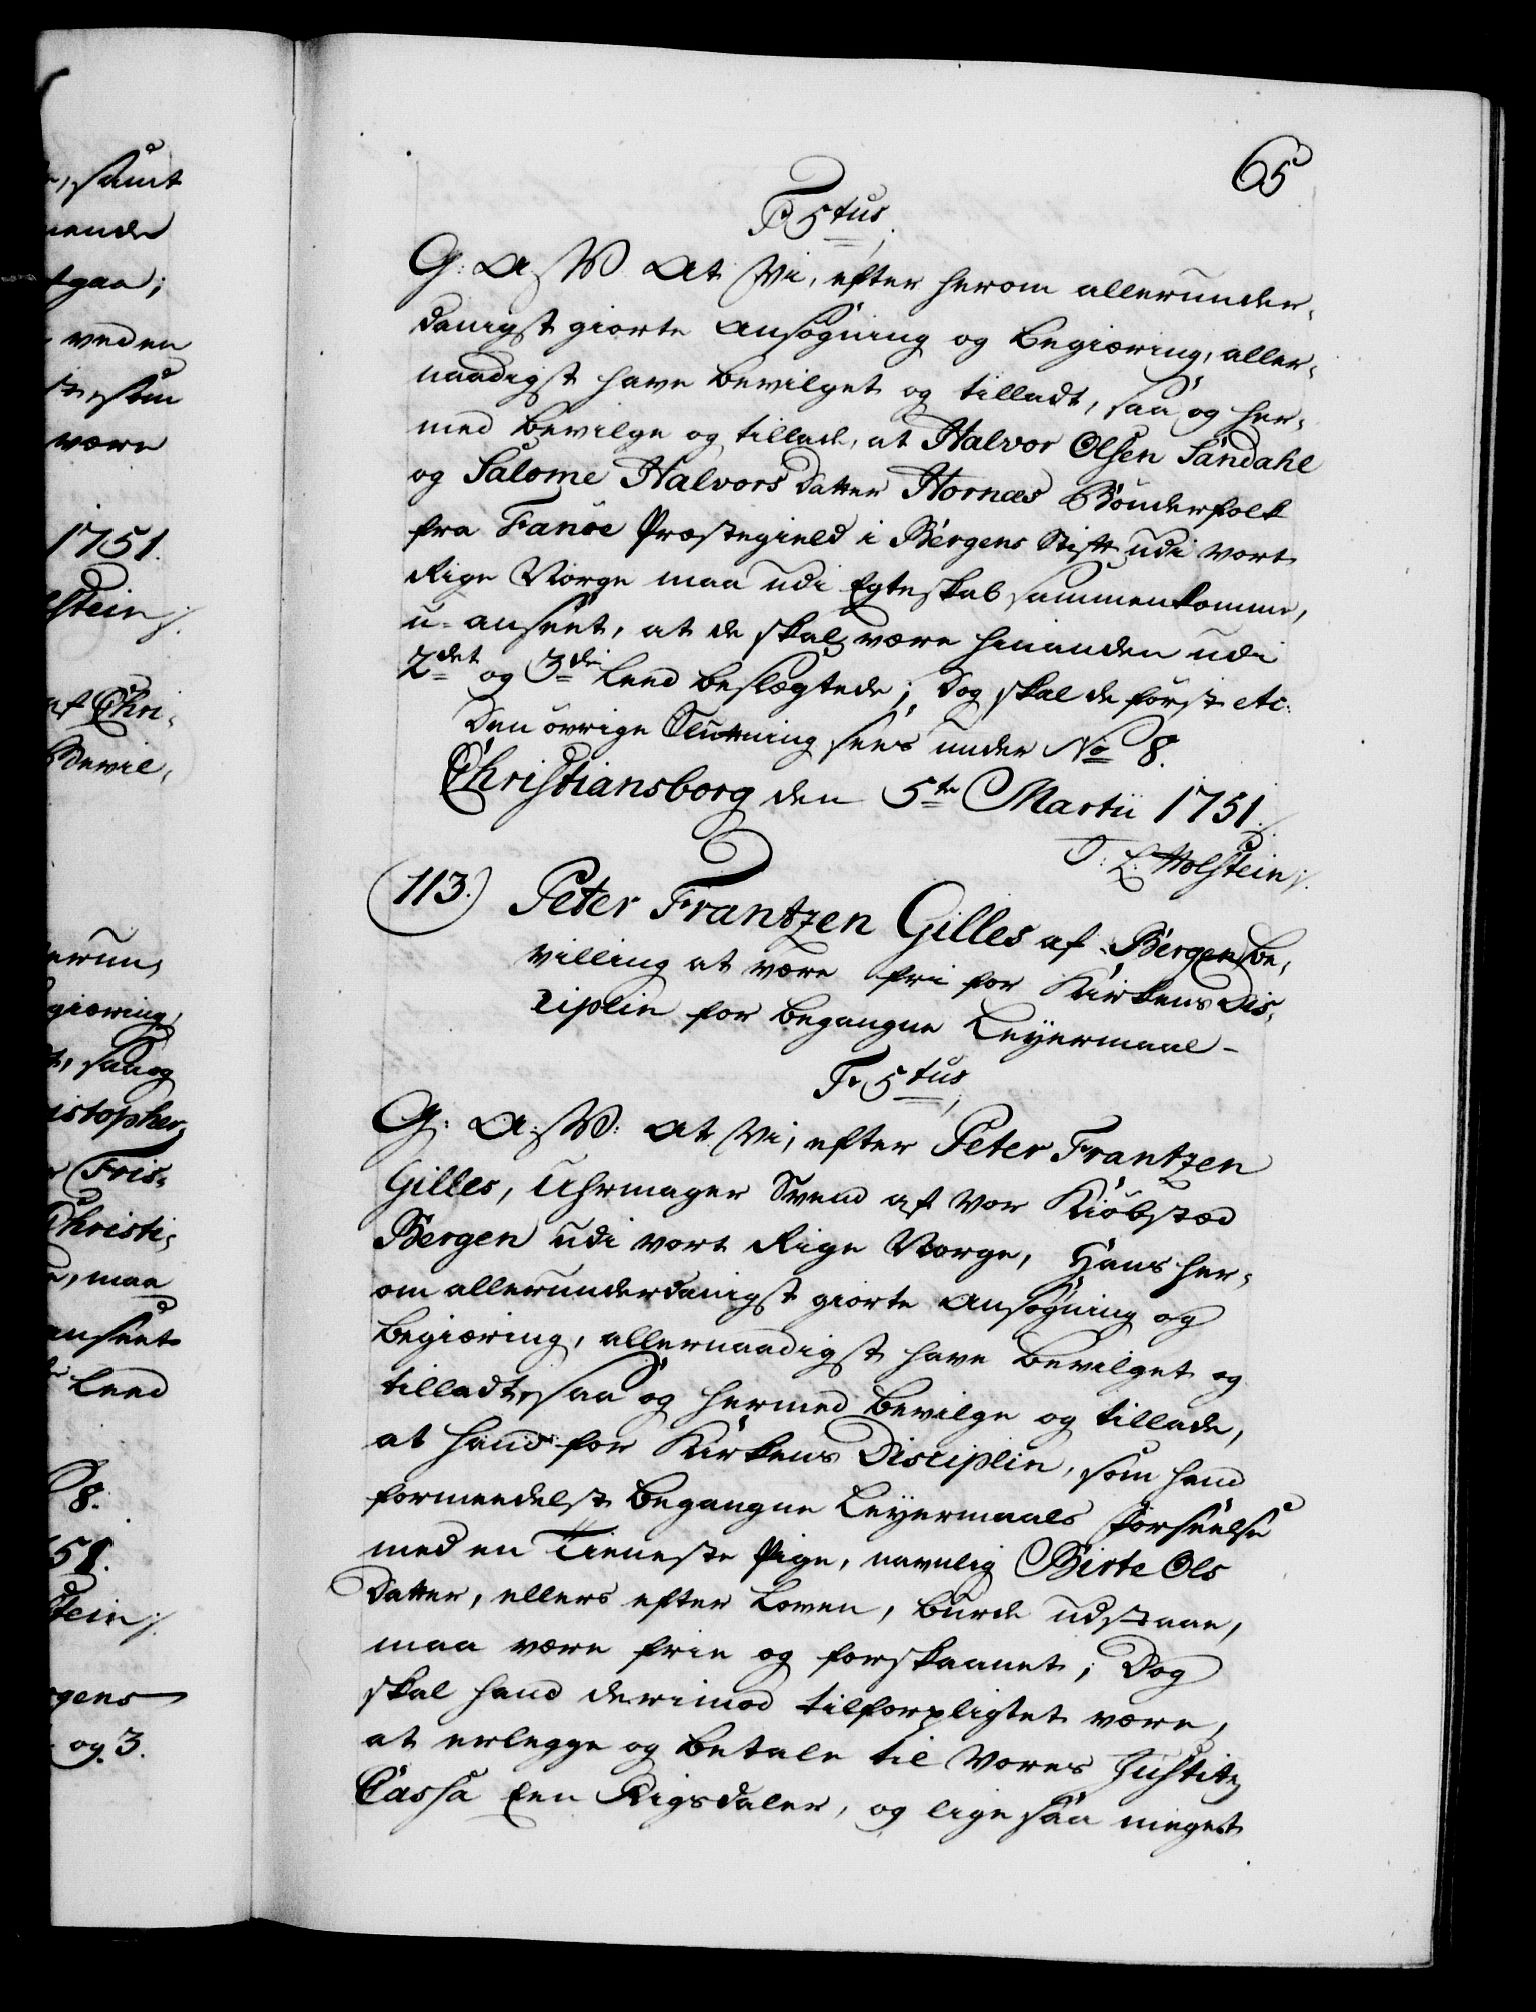 65
F 5tus
G: A: W: At Vi, efter herom allerunder-
danigst giorte Ansøgning og Begiæring, aller-
naadigst have bevilget og tilladt, saa og her-
med bevilge og tillade, at Halvor Olsen Sandahl
og Salome Halvors Datter Hornæs Bønderfolk
fra Fanøe Præstegield i Bergens Stift udi vort
Rige Norge maa udi Egteskab sammenkomme,
u-anseet, at de skal være hinanden udi
2det og 3die Leed beslægtede; Dog skal de først etc:
Den øvrige Slutning sees under No 8.
Christiansborg den 5te Martii 1751.
J: L: Holstein
(113.) Peter Frantzen Gilles af Bergen Be-
villing at være fri for Kirkens Dis-
ciplin for begangne Leyermaal-
Fr 5tus
G: A: W: At Vi, efter Peter Frantzen
Gilles, Uhrmager Svend af vor Kiøbstæd
Bergen udi vort Rige Norge, Hans her-
om allerunderdanigst giorte Ansøgning og
Begiæring, allernaadigst have bevilget og
tilladt, saa og hermed bevilge og tillade,
at hand for Kirkens Disciplin, som hand
formedelst begangne Leyermaals Forseelse
med en Tieneste Pige, navnlig Birte Ols
Datter, ellers efter Loven, burde udstaae,
maa være frie og forskaanet; Dog
skal hand derimod tilforpligtet være,
at erlegge og betale til Vores Justitz
Cassa Een Rigsdaler, og lige saa meget
, samt
nende
tgaa;
veden
som
være
1751.
lstein
af Chri-
Bevil-
erun-
giæring,
t, saa og
istopher,
r Fris-
Christi-
, maa
anseet
Leed
8.
51.
stein
gens
og 3.